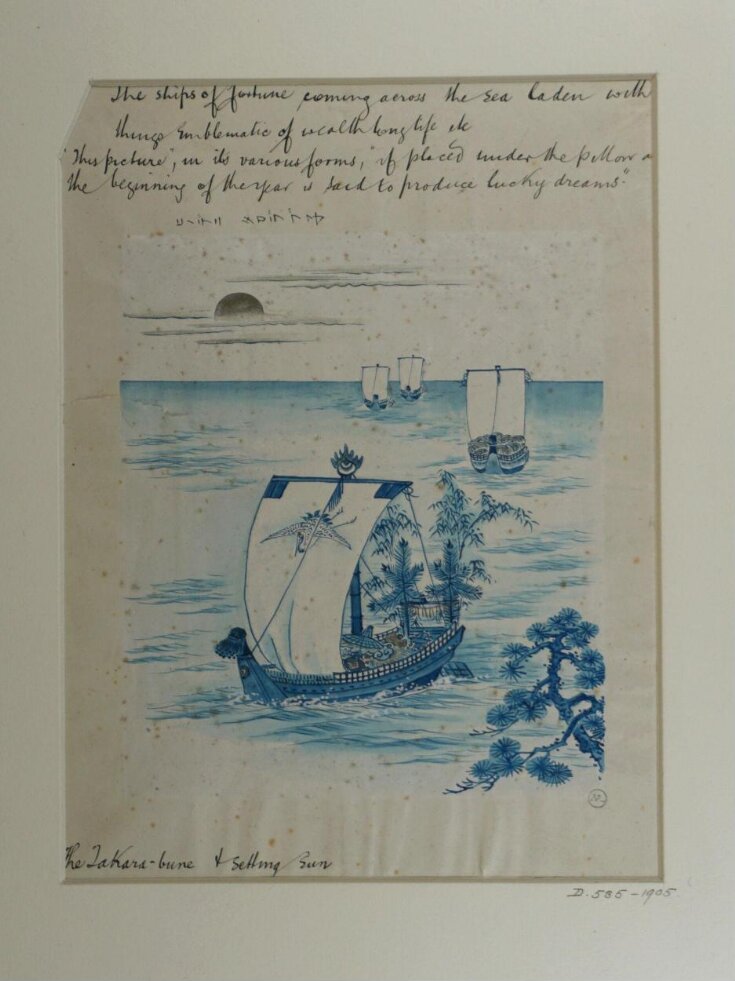 The ships of fortune coming across the sea laden with
things Emblematic of wealth long life etc
"This picture", in its various forms, "if placed under the pillow a
the beginning of the year is said to produce lucky dreams."
The Takara-bune & Setting Sun
D. 585-1905